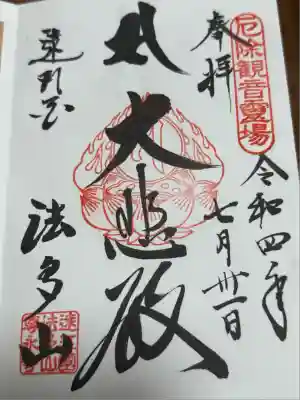 厄除観音霊場
奉拝
令和四年
七月卅一日
大悲殿
遠州
法多山